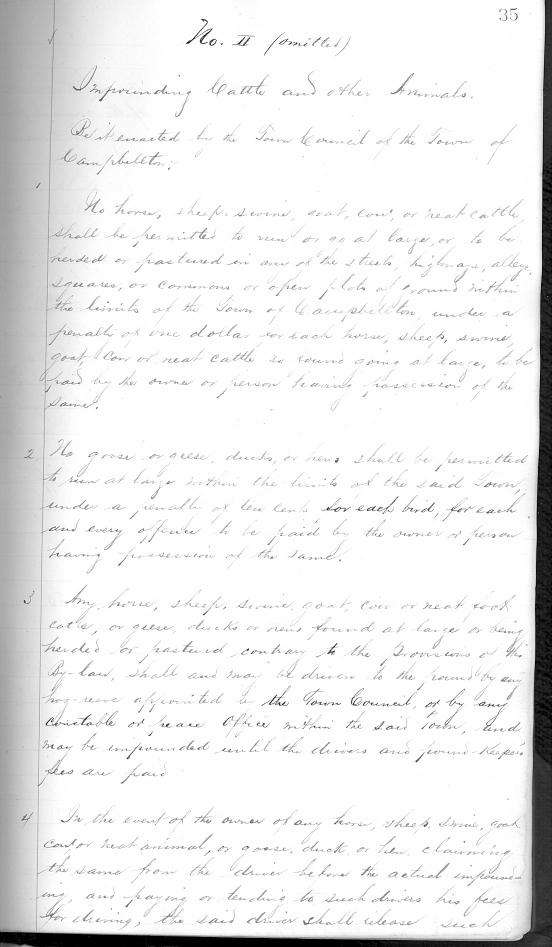 35
No. II (omitted)
Impounding Cattle and other Animals.
Be it enacted by the Town Council of the Town of
Campbellton:
1
No horse, sheep, swine, goat, cow, or neat cattle,
shall be permitted to run or go at large, or to be
herded or pastured in any of the streets, highways, alleys,
squares, or commons or open plots of ground within
the limits of the Town of Campbellton, under a
penalty of one dollar for each horse, sheep, swine,
goat, cow or neat cattle so found going at large, to be
paid by the owner or person having possession of the
same.
2 No goose or geese, ducks, or hens shall be permitted
to run at large within the limits of the said Town,
under a penalty of ten cents for each bird, for each
and every offence to be paid by the owner or person
having possession of the same.
3 Any horse, sheep, swine, goat, cow or neat
cattle, or geese, ducks or hens found at large or being
herded or pastured contrary to the Provisions of this
By-law, shall and may be driven to the pound by any
hog-reeve appointed by the Town Council, or by any
constable or peace Office within the said Town, and
may be impounded until the drivers and pound-keepers
fees are paid
4 In the event of the owner of any horse, sheep, swine, goat
cow or neat animal, or goose, duck or hen, claiming
the same from the driver before the actual impound-
ing, and paying or tending to such drivers his fees
for driving, the said driver shall release such